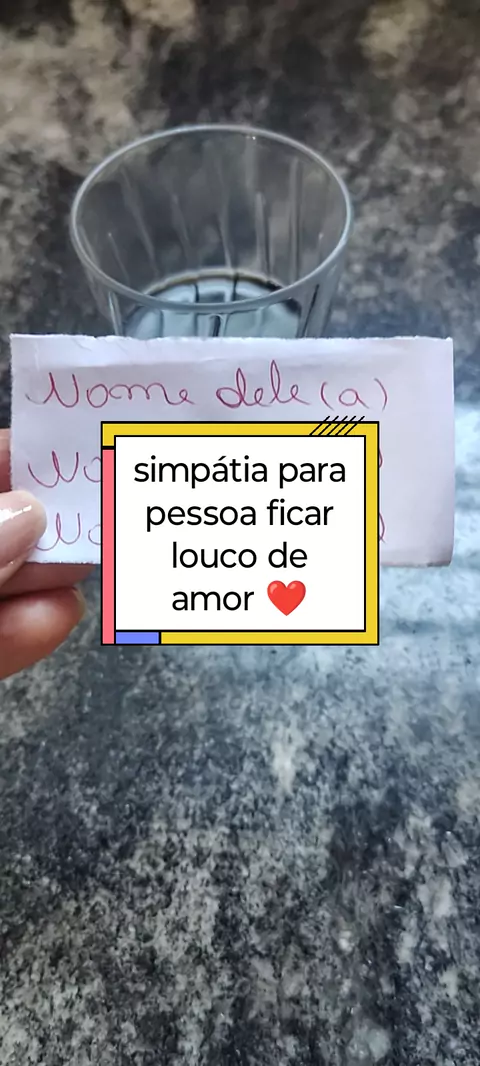 Nome dele(a)
simpátia para
pessoa ficar
louco de
amor ❤️